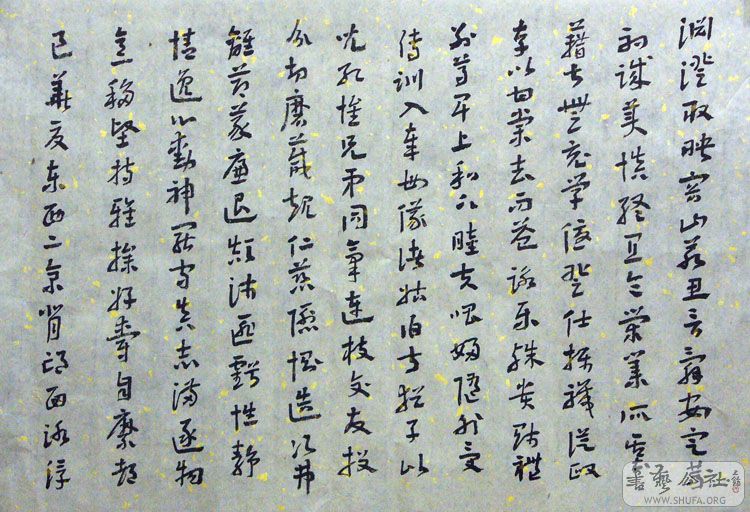 淵澄取映容止若思言辭安定
初誠美慎終宜令榮業所基
籍甚無竟學優登仕攝職從政
存以甘棠去而益詠樂殊貴賤禮
別尊卑上和下睦夫唱婦隨外受
傅訓入奉母儀諸姑伯叔猶子比
兒孔懷兄弟同氣連枝交友投
分切磨箴規仁慈隱惻造次弗
離節義廉退顛沛匪虧性靜
情逸心動神疲守真志滿逐物
意移堅持雅操好爵自縻都
邑華夏東西二京背邙面洛浮
WWW.SHUFA.ORG